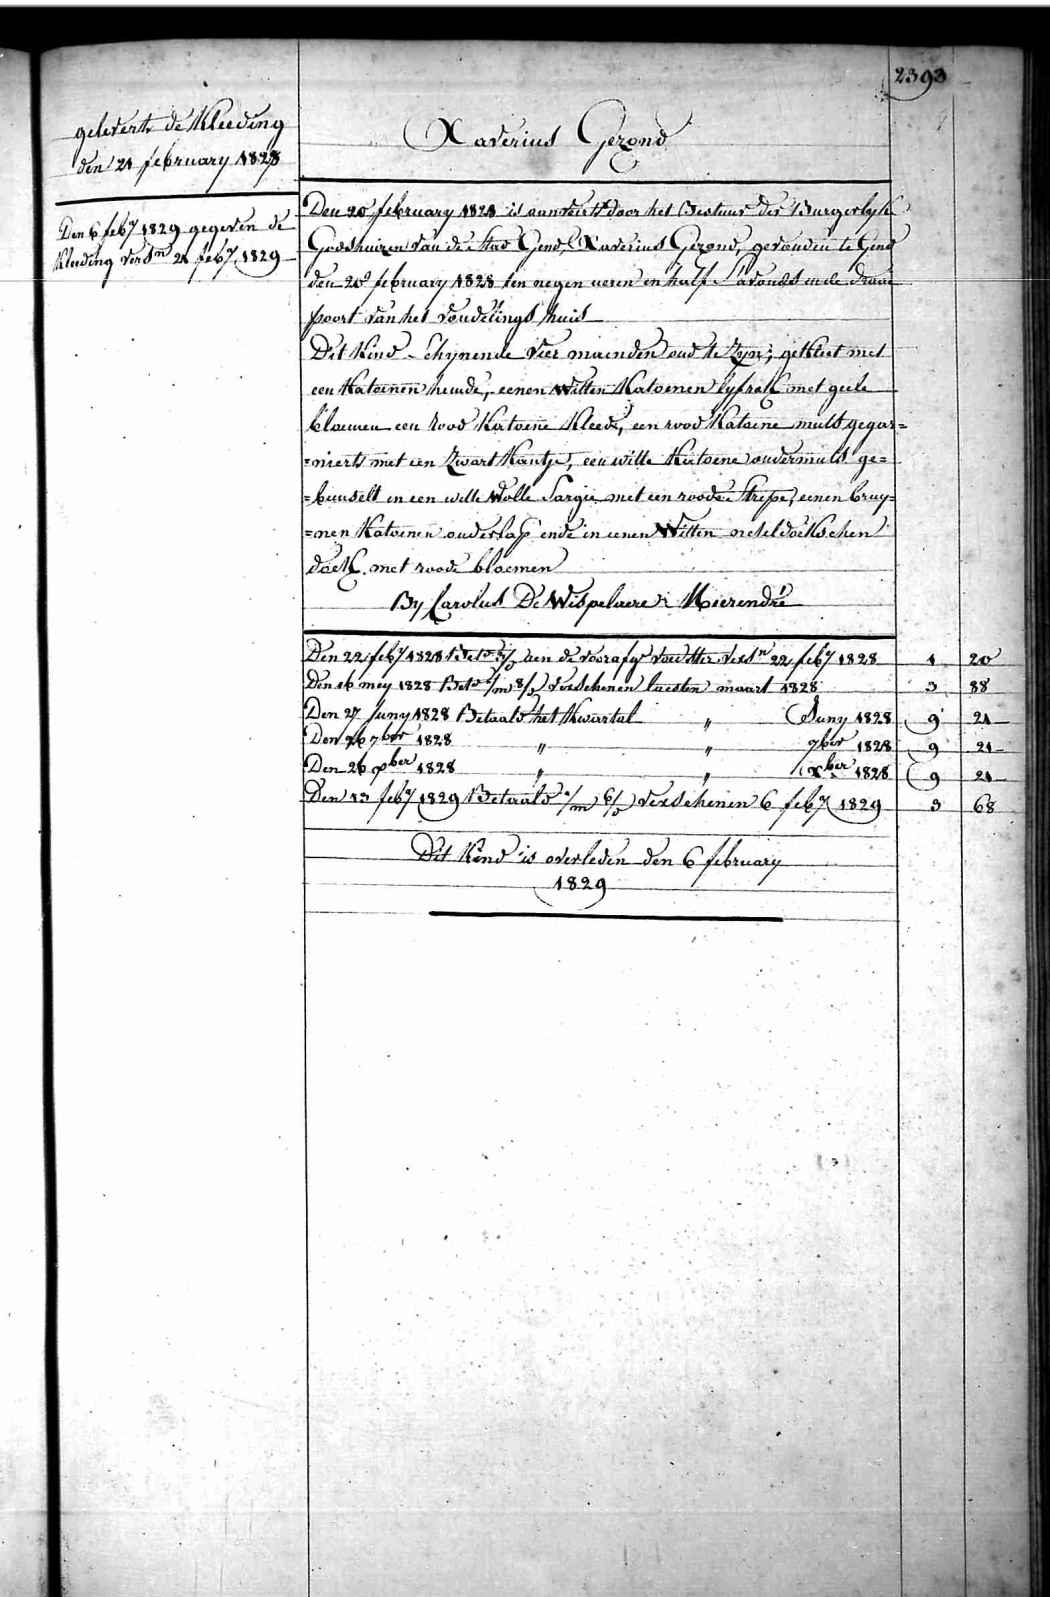 2393
gelevert de Kleeding
den 21 february 1828
Den 6 feb.y 1829 gegeven de
Kleeding vers.n 21 feb.y 1829
Xaverius Gezond
Den 20 february 1828 is aanveert door het Bestuur der Burgerlyke
Godshuizen van de Stad Gend, Xaverius Gezond, gevonden te Gend
den 20 february 1828 ten negen ueren en half S'avonds in de draai
poort van het vondelings huis
Dit Kind schynende vier maenden oud te Zyn, gekleet met
een Katoenen hemde, eenen Witten Katoenen lyfrok met geele
bloemen een rood Katoene Kleed, een rood Katoene muts gegar=
=nierts met een Zwart Kantje, een witte Katoene ondermuts ge=
=bunselt in een witte Wolle Sargie met een roode Stripe, eenen bruy=
=nen Katoenen onderlap ende in eenen Witten neteldoekschen
doek met roode bloemen
By Carolus De Wispelaere Meerendré
Den 22 feb.y 1828 aen de voorafg.e voedster vers.n 22 feb.y 1828 1 20
Den 16 mey 1828 Bet.d verschenen laesten maart 1828 3 88
Den 27 Juny 1828 Betaald het Kwartal " Juny 1828 9 21
Den 26 7ber 1828 " " 7ber 1828 9 21
Den 26 xber 1828 " " xber 1828 9 21
Den 13 feb.y 1829 Betaald verschenen 6 feb.y 1829 3 68
Dit Kind is overleden den 6 february
1829